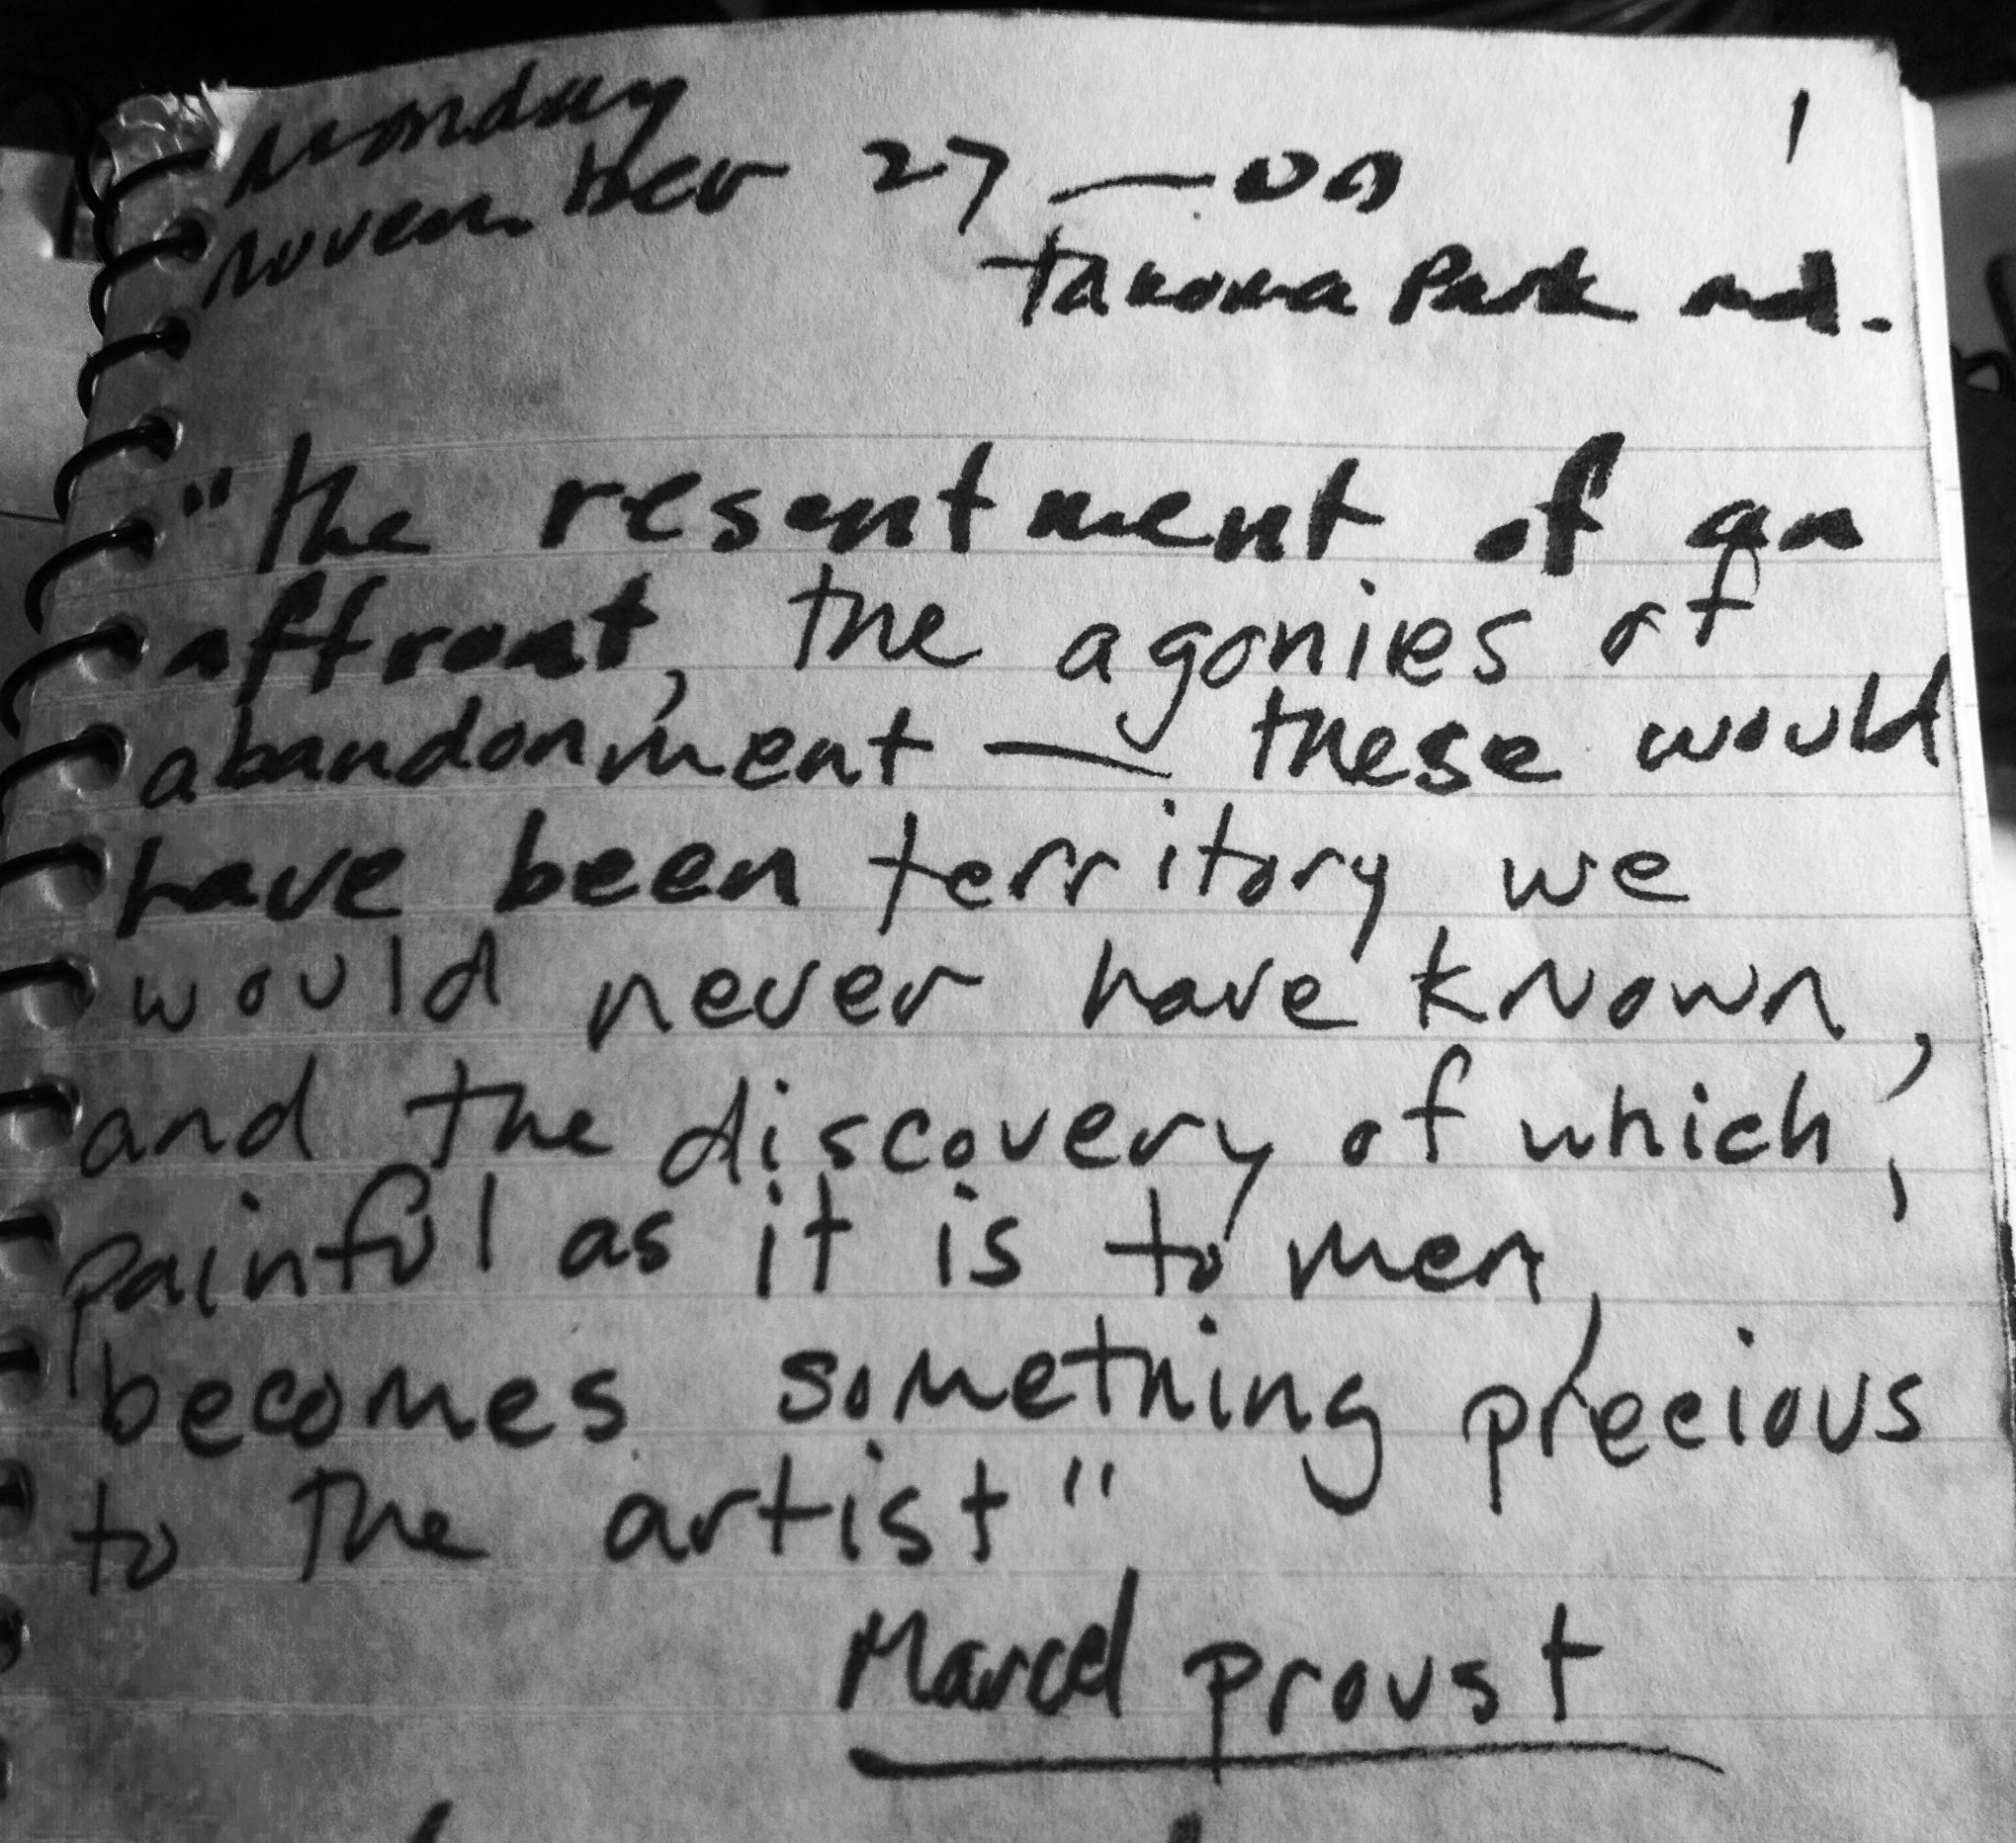 monday
november 27 — 00
1
takoma Park md.
"the resentment of an
affront, the agonies of
abandonment — these would
have been territory we
would never have known,
and the discovery of which,
painful as it is to men,
becomes something precious
to the artist"
Marcel proust